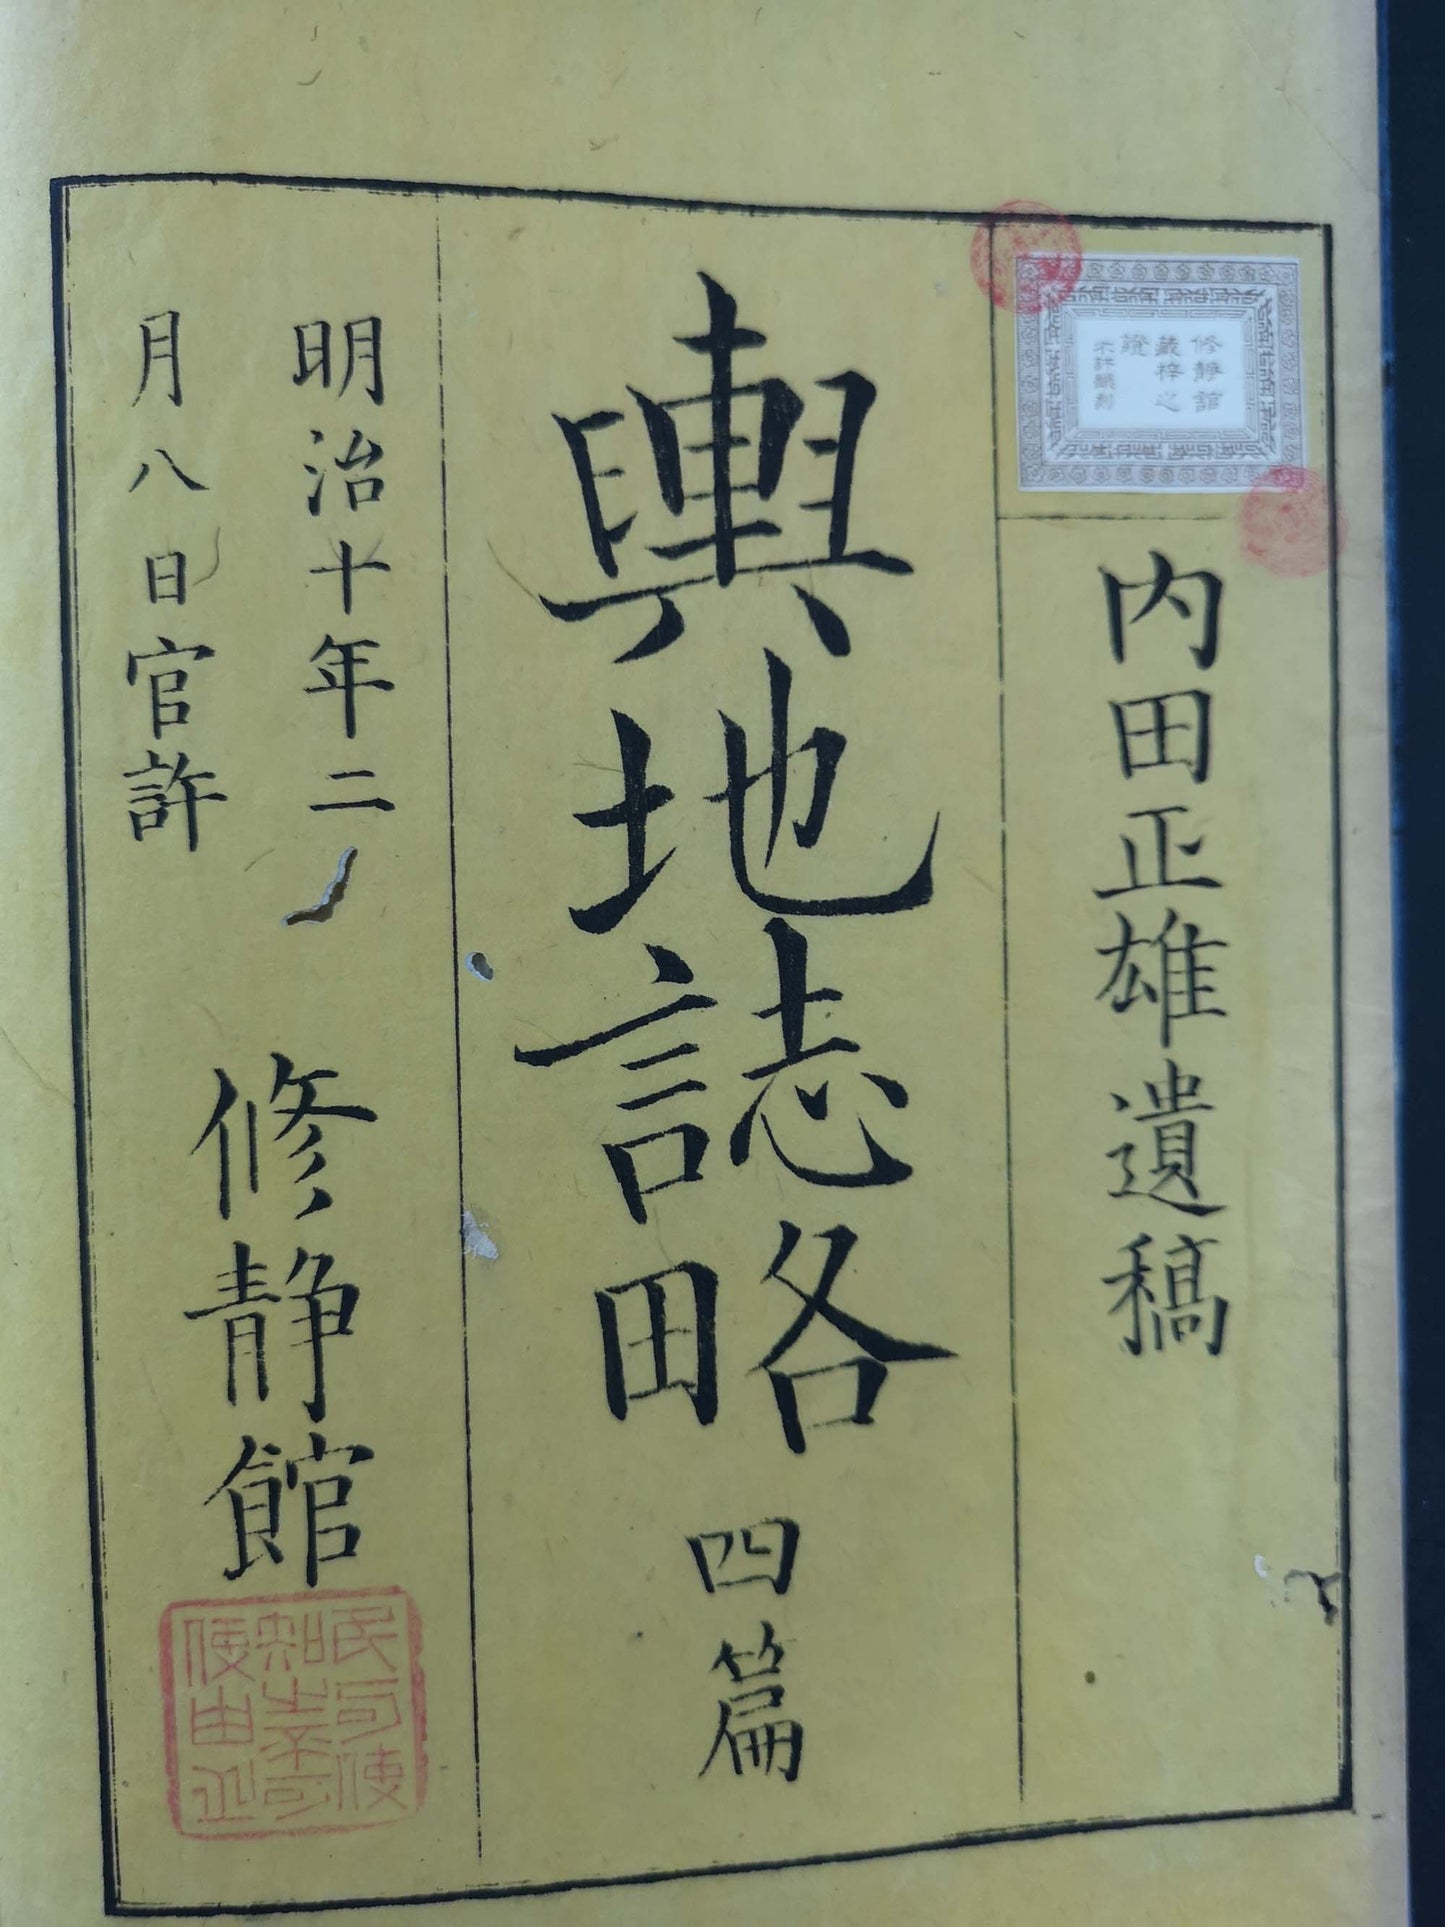 修靜舘
藏梓之
證
不許翻刻
内田正雄遺稿
輿地誌略 四篇
明治十年二
月八日官許
修静館
民可使
知之不可
使由之